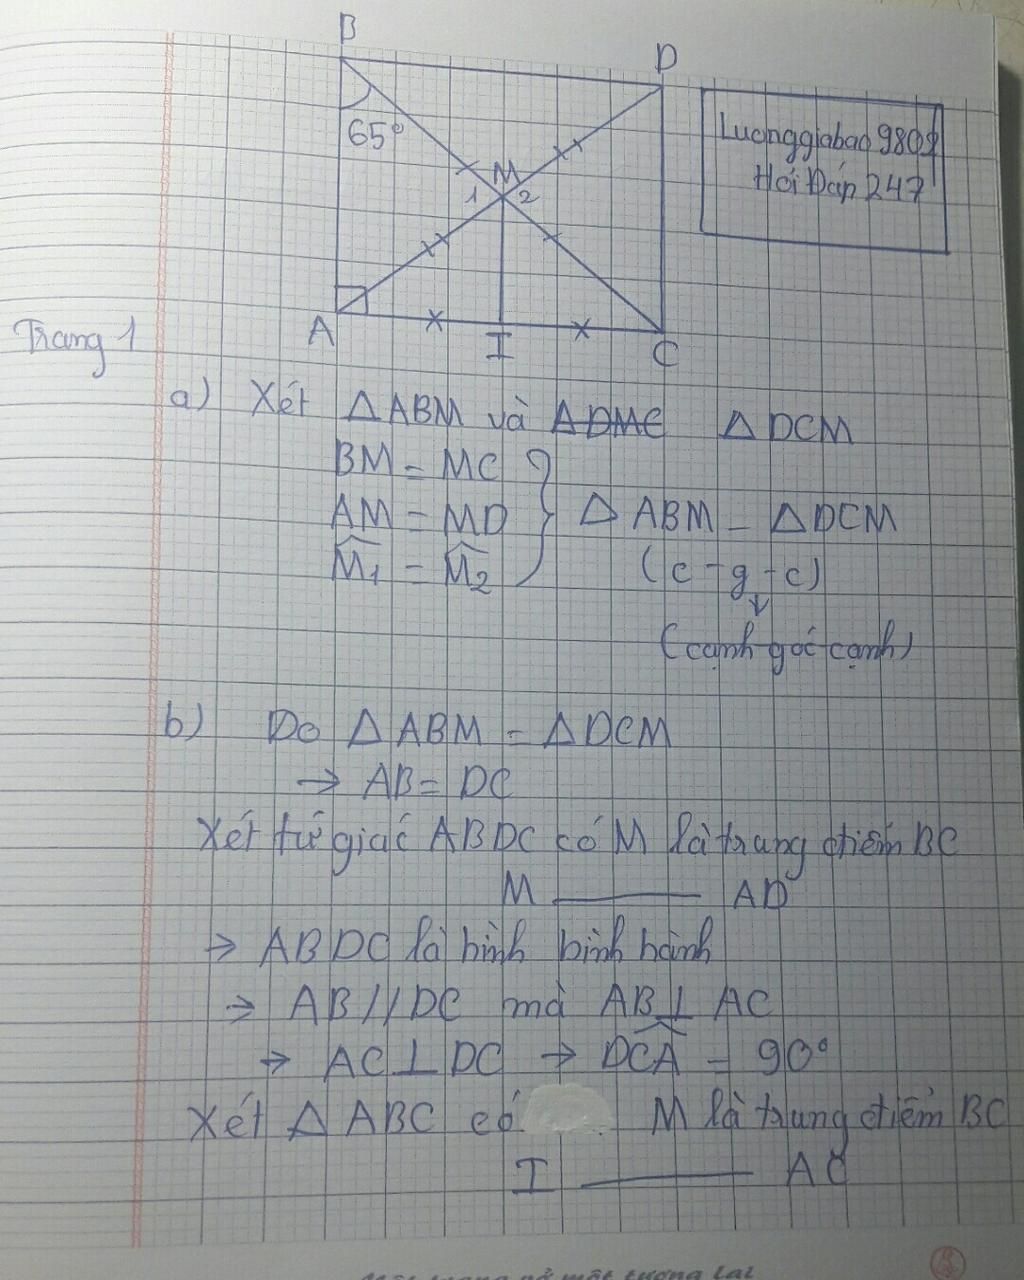 B
D
65°
M
1 2
A
I
C
Luonggiabao9808
Hỏi Đáp 247
Trang 1
a) Xét △ABM và △DCM
BM = MC
AM = MD
△ABM = △DCM
M̂1 = M̂2
(c-g-c)
(cạnh góc cạnh)
b) Do △ABM = △DCM
→ AB = DC
Xét tứ giác ABDC có M là trung điểm BC
M ——— AD
→ ABDC là hình bình hành
→ AB // DC mà AB ⊥ AC
→ AC ⊥ DC → DCA = 90°
Xét △ABC có M là trung điểm BC
I ——— AC